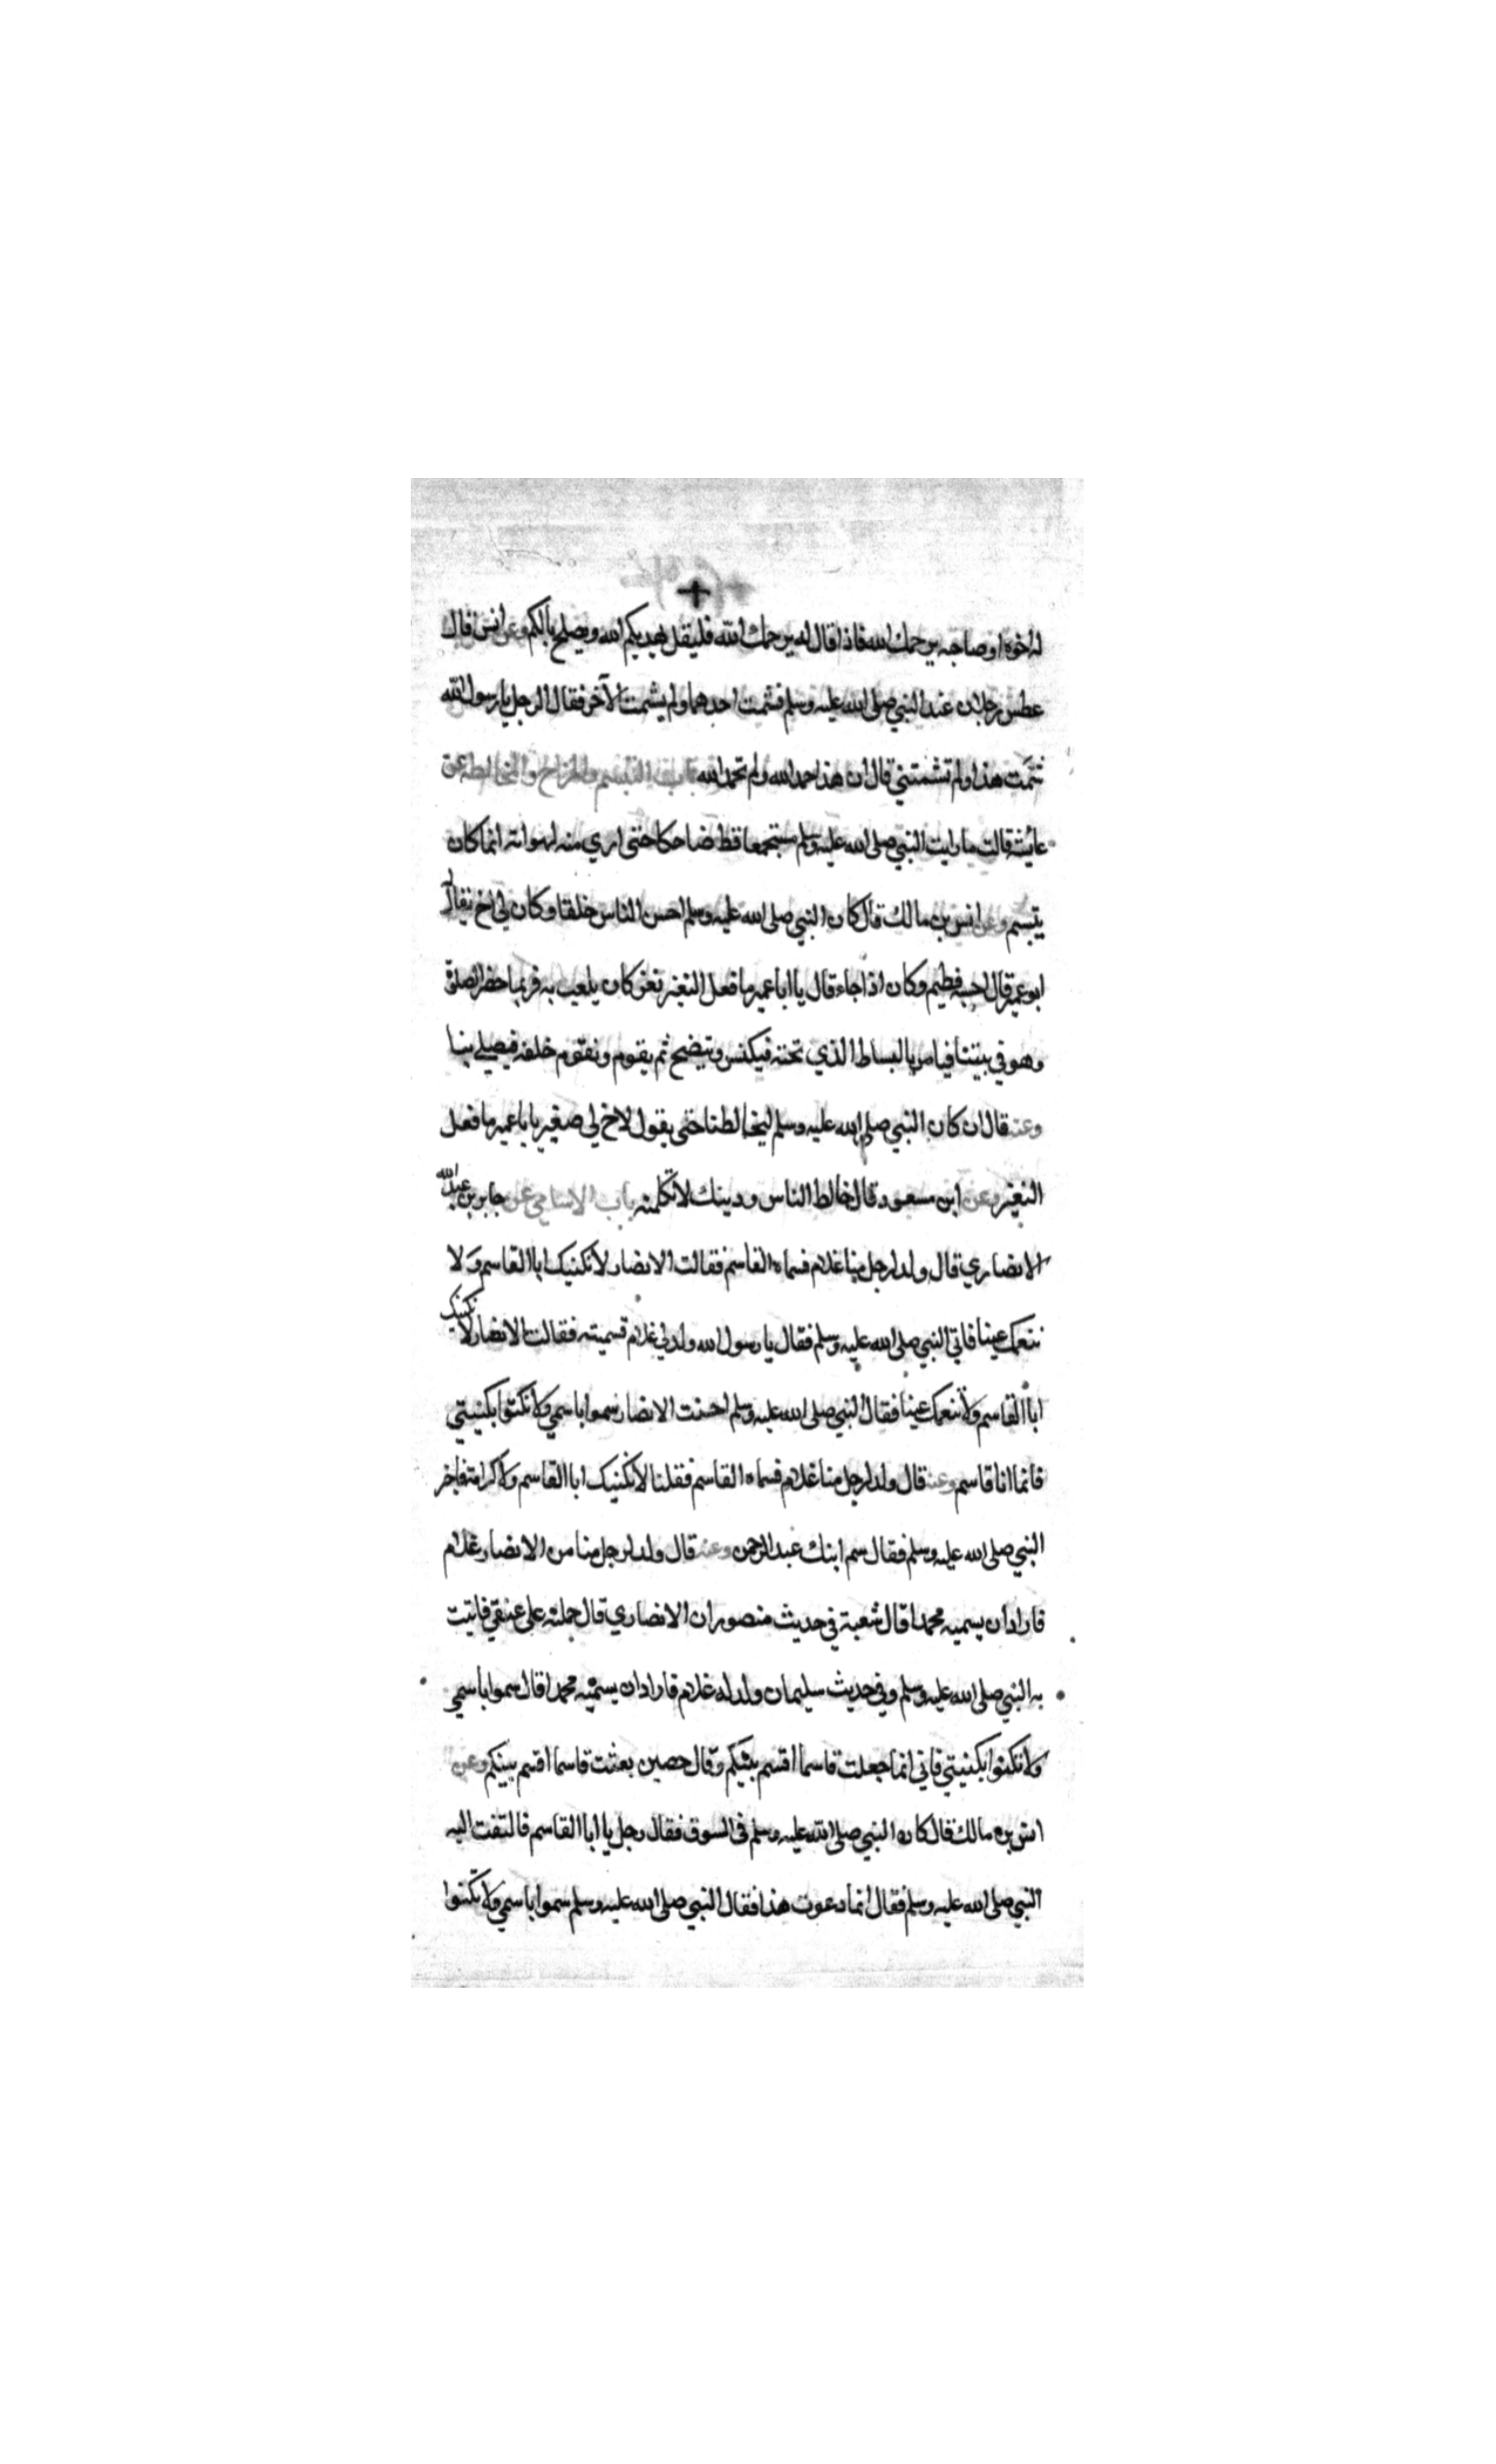 له اخوه او صاحبه يرحمك الله فاذا قال له يرحمك الله فليقل يهديكم الله ويصلح بالكم وعن انس قال
عطس رجلان عند النبي صلى الله عليه وسلم فشمت احدهما ولم يشمت الآخر فقال الرجل يا رسول الله
شمّت هذا ولم تشمتني قال ان هذا حمد الله ولم تحمد الله باب التبسم والمزاح والمخالطة عن
عائشة قالت ما رايت النبي صلى الله عليه وسلم مستجمعا قط ضاحكا حتى ارى منه لهواته انما كان
يتبسم وعن انس بن مالك قال كان النبي صلى الله عليه وسلم احسن الناس خلقا وكان لي اخ يقال له
ابو عمير قال احسبه فطيم وكان اذا جاء قال يا ابا عمير ما فعل النغير نغر كان يلعب به فربما حضر الصلوة
وهو في بيتنا فيامر بالبساط الذي تحته فيكنس وينضح ثم يقوم ونقوم خلفه فيصلي بنا
وعنه قال ان كان النبي صلى الله عليه وسلم ليخالطنا حتى يقول لاخ لي صغير يا با عمير ما فعل
النغير وعن ابن مسعود قال خالط الناس ودينك لا تكلمنه باب الاسامي عن جابر بن عبد الله
الانصاري قال ولد لرجل منا غلام فسماه القاسم فقالت الانصار لا نكنيك ابا القاسم ولا
ننعمك عينا فاتى النبي صلى الله عليه وسلم فقال يا رسول الله ولد لي غلام فسميته فقالت الانصار لا نكنيك
ابا القاسم ولا ننعمك عينا فقال النبي صلى الله عليه وسلم احسنت الانصار سموا باسمي ولا تكنوا بكنيتي
فانما انا قاسم وعنه قال ولد لرجل منا غلام فسماه القاسم فقلنا لا نكنيك ابا القاسم ولا كرامة فاخبر
النبي صلى الله عليه وسلم فقال سم ابنك عبد الرحمن وعنه قال ولد لرجل منا من الانصار غلام
فاراد ان يسميه محمدا قال شعبة في حديث منصور ان الانصاري قال حملته على عنقي فاتيت
به النبي صلى الله عليه وسلم وفي حديث سليمان ولد له غلام فاراد ان يسميه محمدا قال سموا باسمي
ولا تكنوا بكنيتي فاني انما جعلت قاسما اقسم بينكم وقال حصين بعثت قاسما اقسم بينكم وعن
انس بن مالك قال كان النبي صلى الله عليه وسلم في السوق فقال رجل يا ابا القاسم فالتفت اليه
النبي صلى الله عليه وسلم فقال انما دعوت هذا فقال النبي صلى الله عليه وسلم سموا باسمي ولا تكنوا